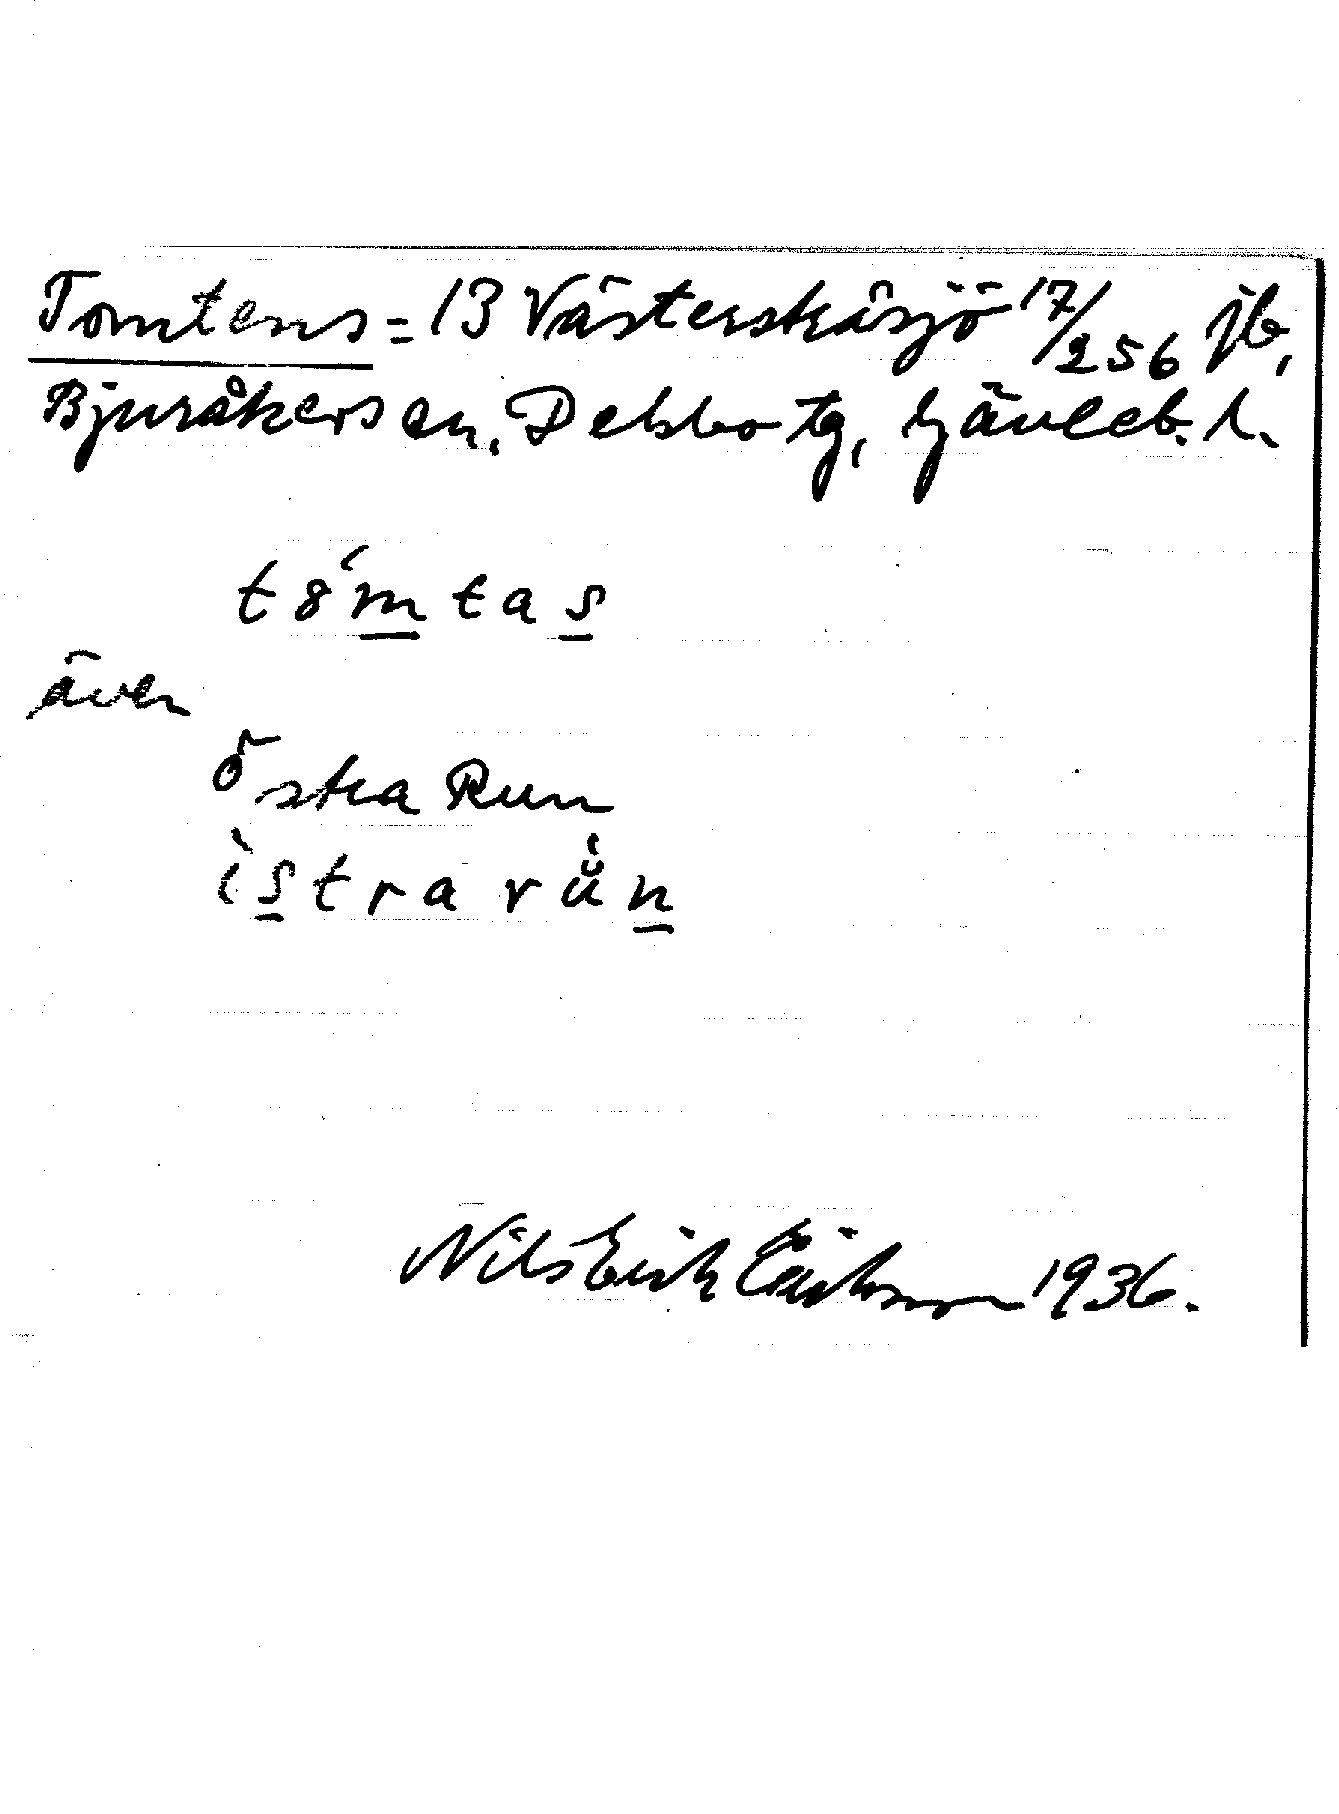 Tomtens = 13 Västerstråsjö 17/256 jb,
Bjuråkers sn, Delsbo tg, Gävleb. l.
tȣ́mtas
även
Östra Run
ìstra rùn
Nils Erik Eriksson 1936.